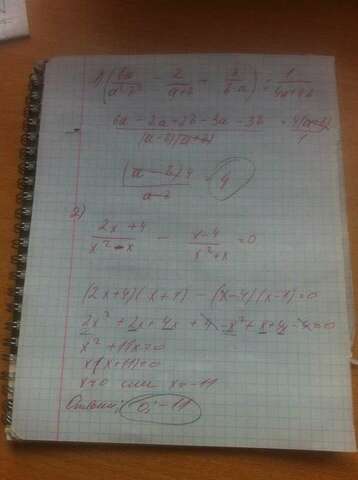 1) (6a/(a²-b²) - 2/(a+b) - 3/(b-a)) : 1/(4a+4b)
(6a - 2a - 2b - 3a - 3b)/((a-b)(a+b)) = 4(a+b)/1
(a - b) 4/(a-b) 4
2)
(2x+4)/(x²-x) - (x-4)/(x²+x) = 0
(2x+4)(x+1) - (x-4)(x-1)=0
2x² + 2x + 4x + 4 - x² + x + 4x - 4 = 0
x² + 11x = 0
x(x+11)=0
x=0 или x=-11
Ответ: 0; -11